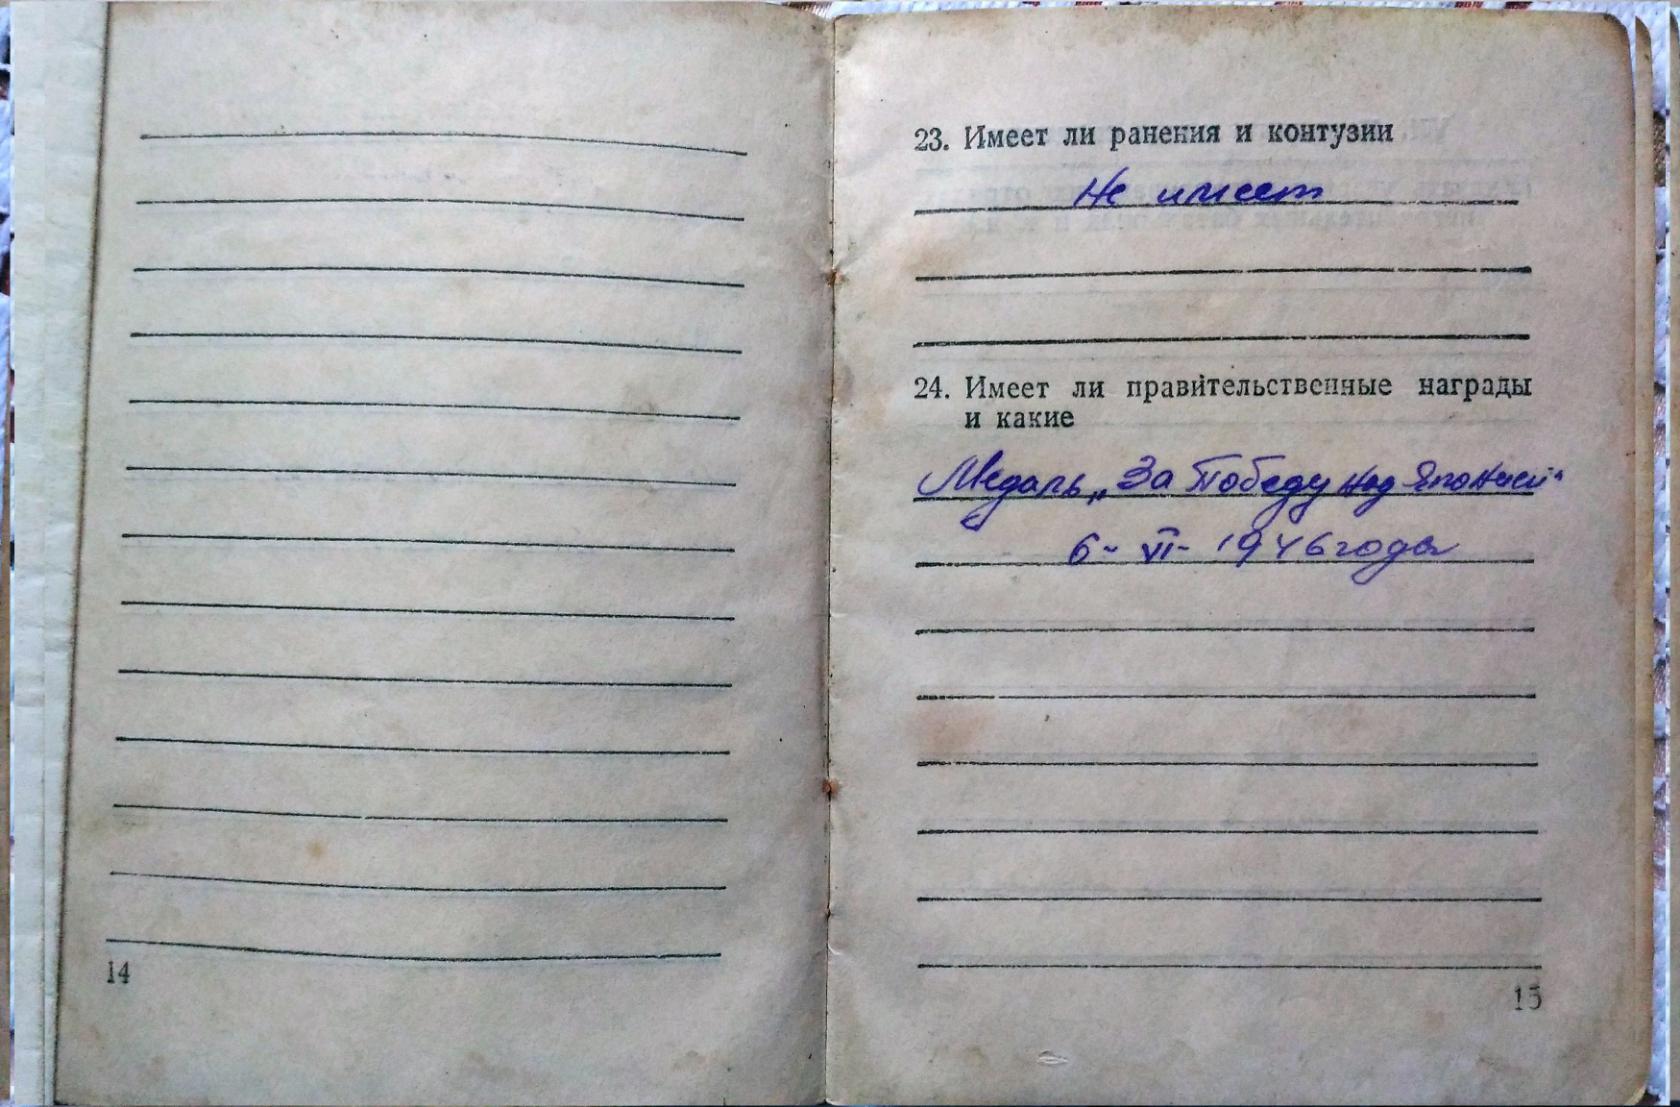 23. Имеет ли ранения и контузии
Не имеет
24. Имеет ли правительственные награды
и какие
Медаль „За Победу над Японией“
6- VI- 1946 года
14
15